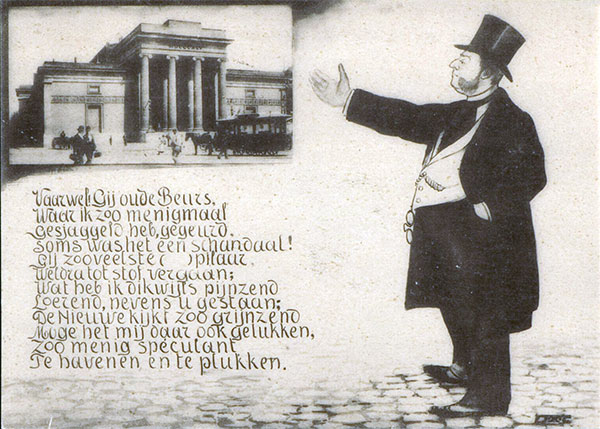 Vaarwel! Gij oude Beurs,
Waar ik zoo menigmaal
Gesjaggeld heb, gegeurd,
Soms was het een schandaal!
Gij zooveelste ( ) pilaar,
Weldra tot stof, vergaan;
Wat heb ik dikwijls pijnzend
Loerend, nevens u gestaan;
De Nieuwe kijkt zoo grijnzend
Moge het mij daar ook gelukken,
Zoo menig speculant
Te havenen en te plukken.